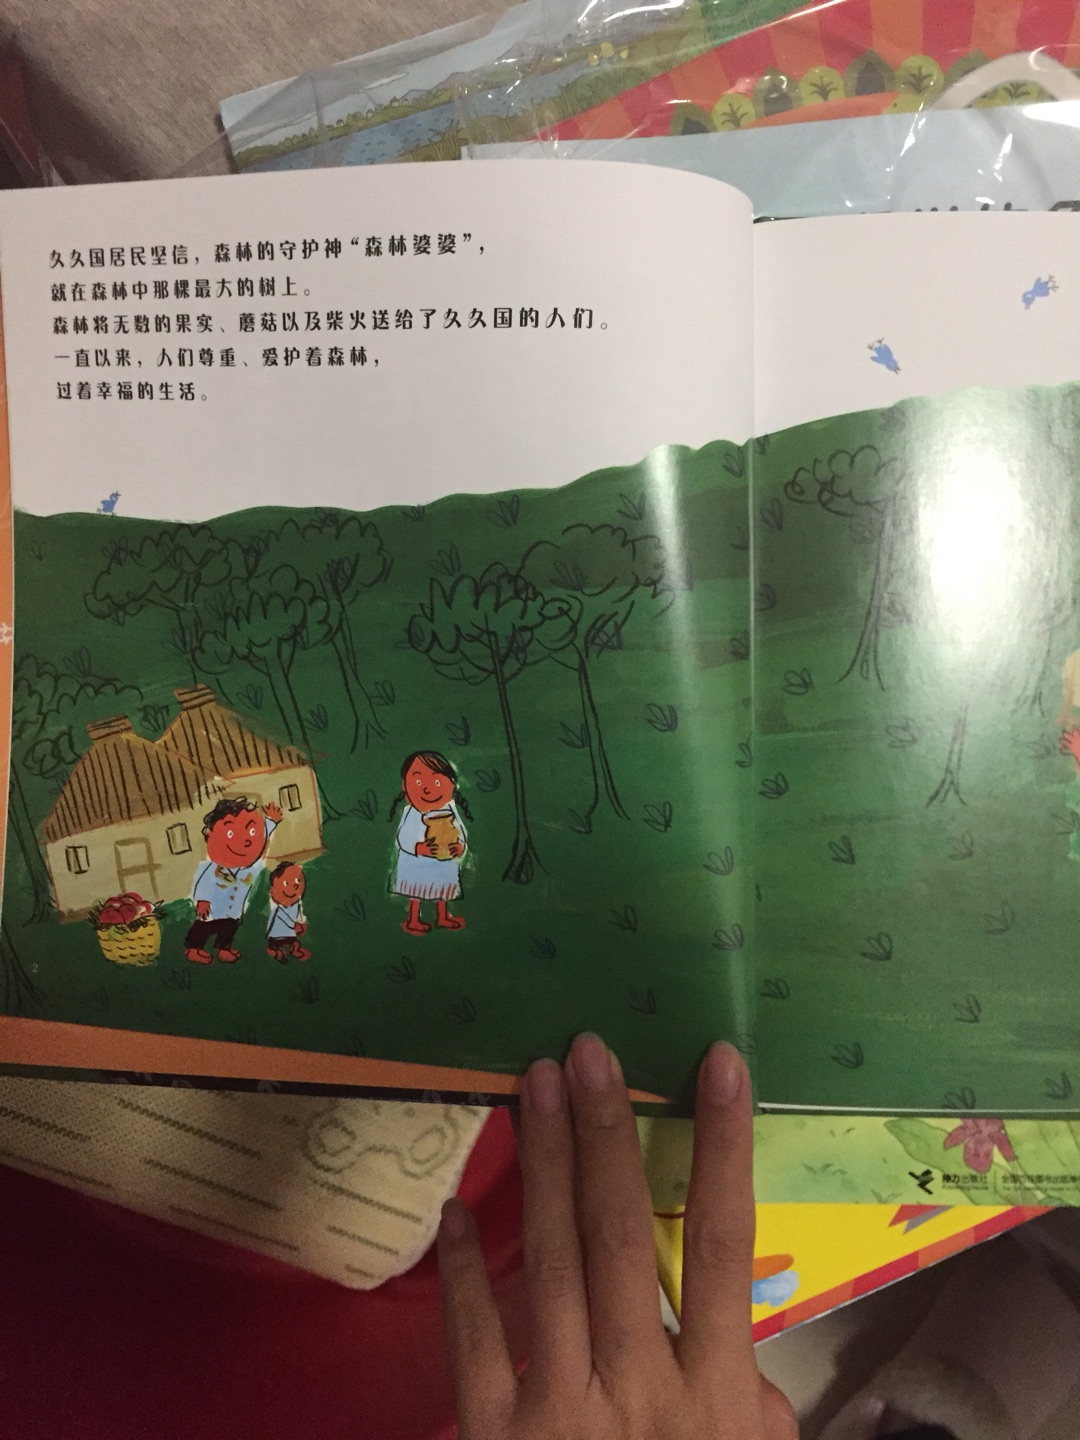 久久国居民坚信，森林的守护神“森林婆婆”，
就在森林中那棵最大的树上。
森林将无数的果实、蘑菇以及柴火送给了久久国的人们。
一直以来，人们尊重、爱护着森林，
过着幸福的生活。
2
接力出版社
Publishing House